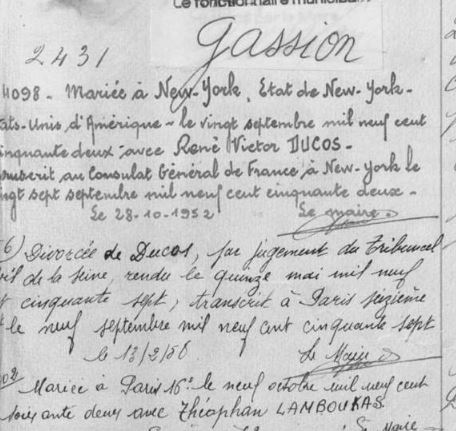 Le fonctionnaire municipal
2431
Gassion
4098 - Mariée à New-York, Etat de New-York -
ats-Unis d'Amérique - le vingt septembre mil neuf cent
inquante deux - avec René Victor DUCOS -
nscrit au Consulat Général de France à New-York le
ngt sept septembre mil neuf cent cinquante deux -
Le 28-10-1952 Le maire
6) Divorcée de Ducos, par jugement du Tribunal
vil de la Seine, rendu le quinze mai mil neuf
t cinquante sept, transcrit à Paris seizième
t le neuf septembre mil neuf cent cinquante sept
le 13/2/58 Le Maire
Mariée à Paris 16e le neuf octobre mil neuf cent
soixante deux avec Théophan LAMBOUKAS
Le Maire